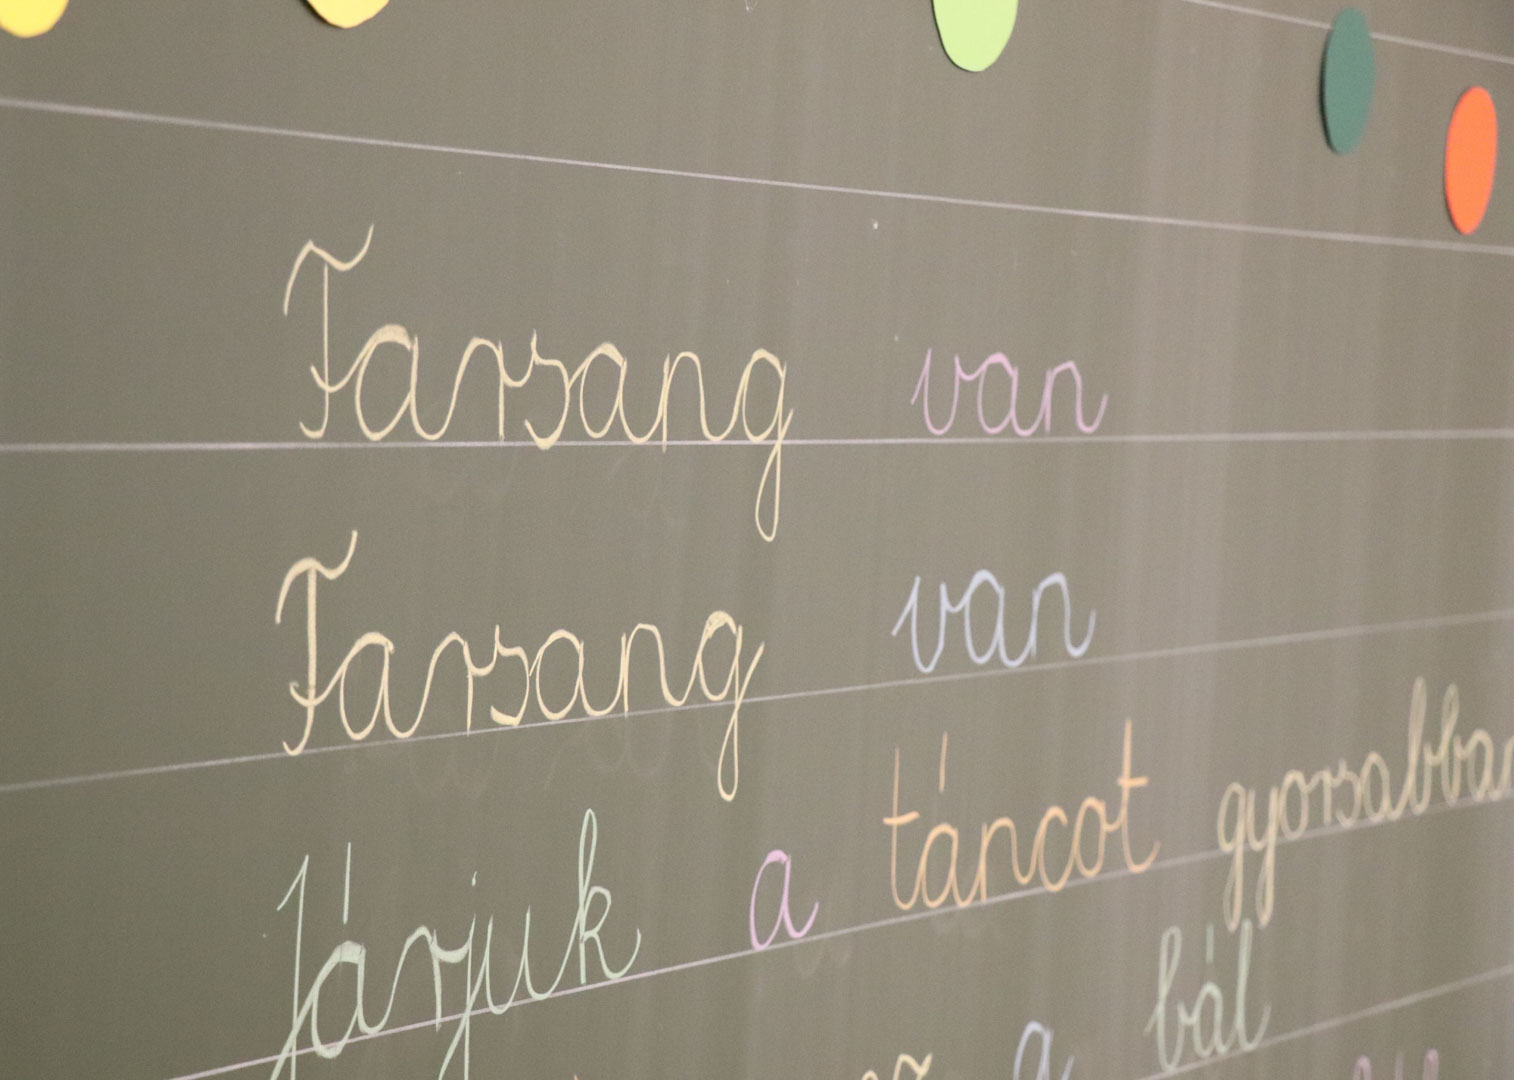 Farsang van
Farsang van
Járjuk a táncot gyorsabban
a bál